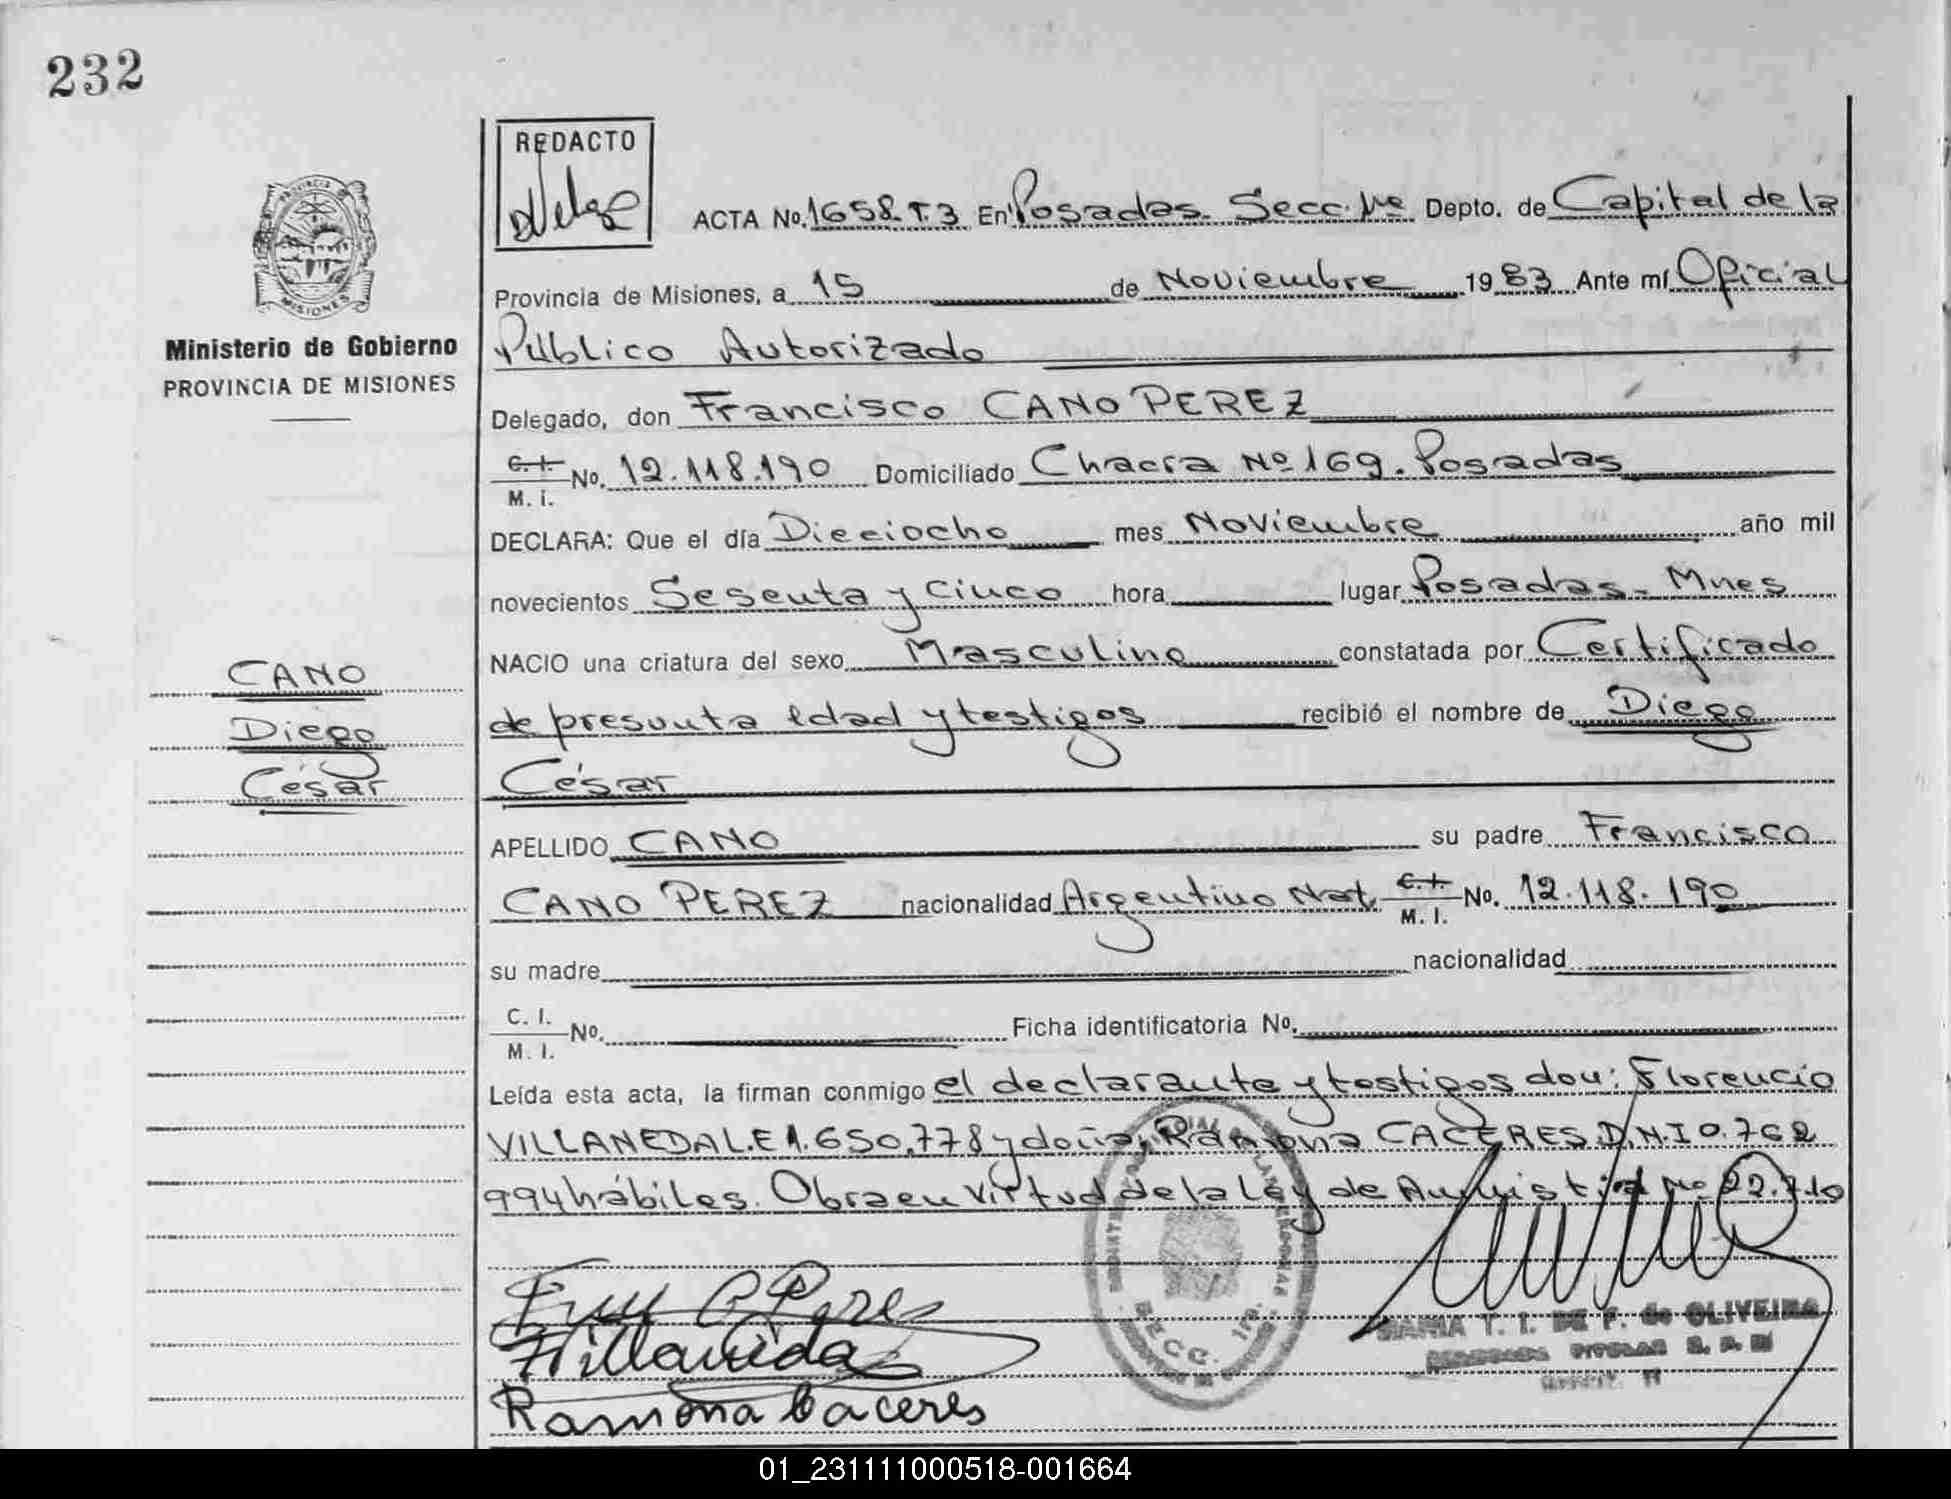 232
REDACTO
ACTA No. 1658. T.3 En Posadas. Secc. 1ra Depto. de Capital de la
Provincia de Misiones, a 15 de Noviembre 1983 Ante mí Oficial
Público Autorizado
Ministerio de Gobierno
PROVINCIA DE MISIONES
Delegado, don Francisco CANO PEREZ
C. I.
M. I. No. 12.118.190 Domiciliado Chacra Nº 169. Posadas
DECLARA: Que el día Dieciocho mes Noviembre año mil
novecientos Sesenta y Cinco hora lugar Posadas - Mnes
NACIO una criatura del sexo Masculino constatada por Certificado
de presunta edad y testigos recibió el nombre de Diego
César
CANO
Diego
César
APELLIDO CANO su padre Francisco
CANO PEREZ nacionalidad Argentino Nat. C. I. M. I. No. 12.118.190
su madre nacionalidad
C. I.
M. I. No. Ficha identificatoria No.
Leída esta acta, la firman conmigo el declarante y testigos don: Florencio
VILLANEDA L.E 1.650.778 y doña, Ramona CACERES D.N.I 0.762
994 hábiles. Obra en virtud de la Ley de Amnistia Nº 22.710
Ramona Caceres
SECC. 1ra.
MARIA T. I. DE F. de OLIVEIRA
01_231111000518-001664